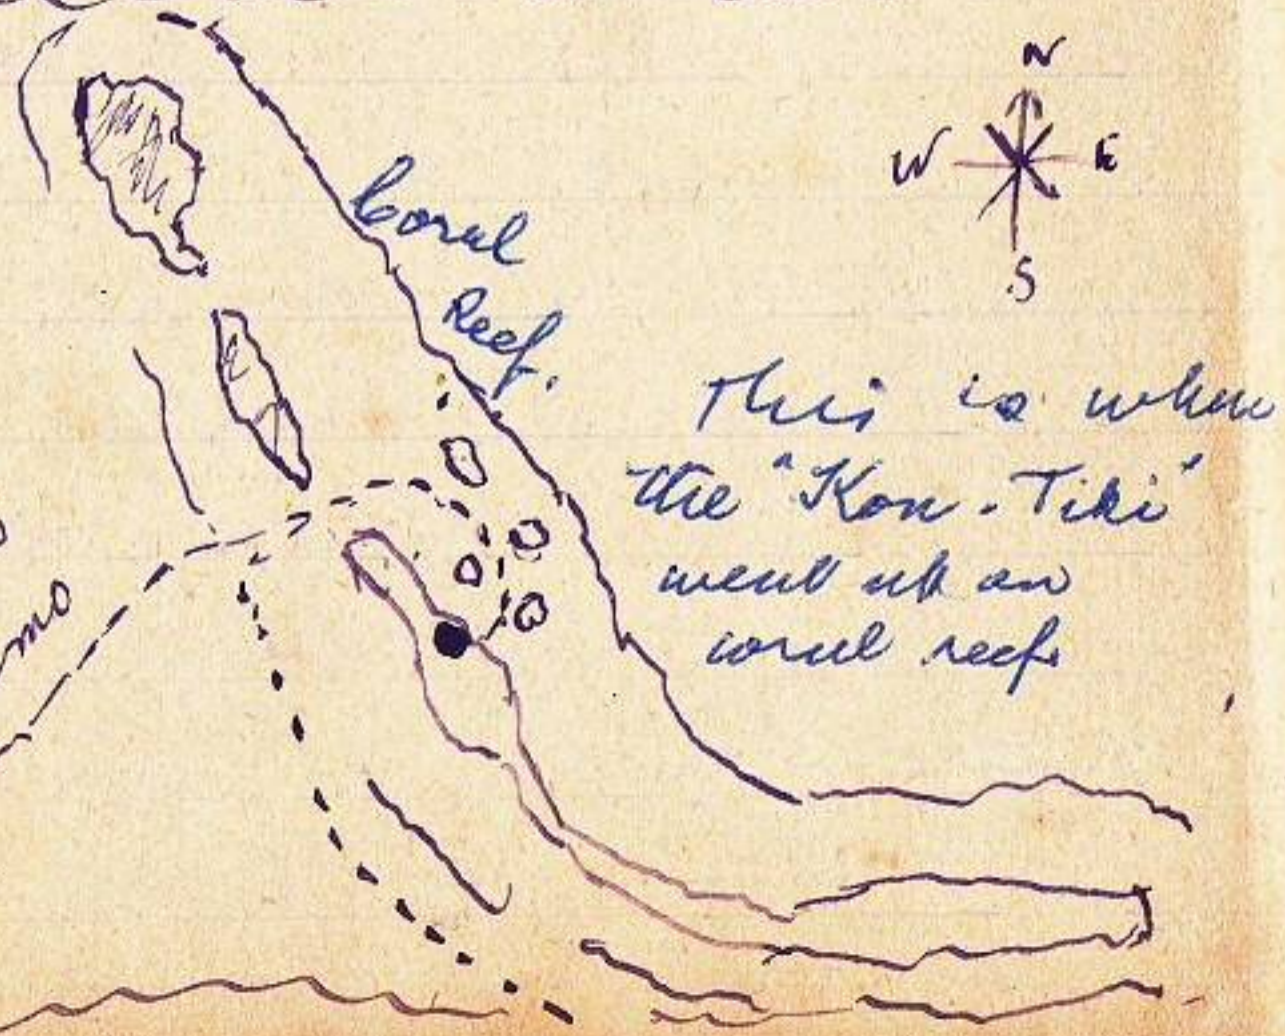 N
W E
S
Coral
Reef.
This is when
the "Kon-Tiki"
went up on
coral reef.
mo